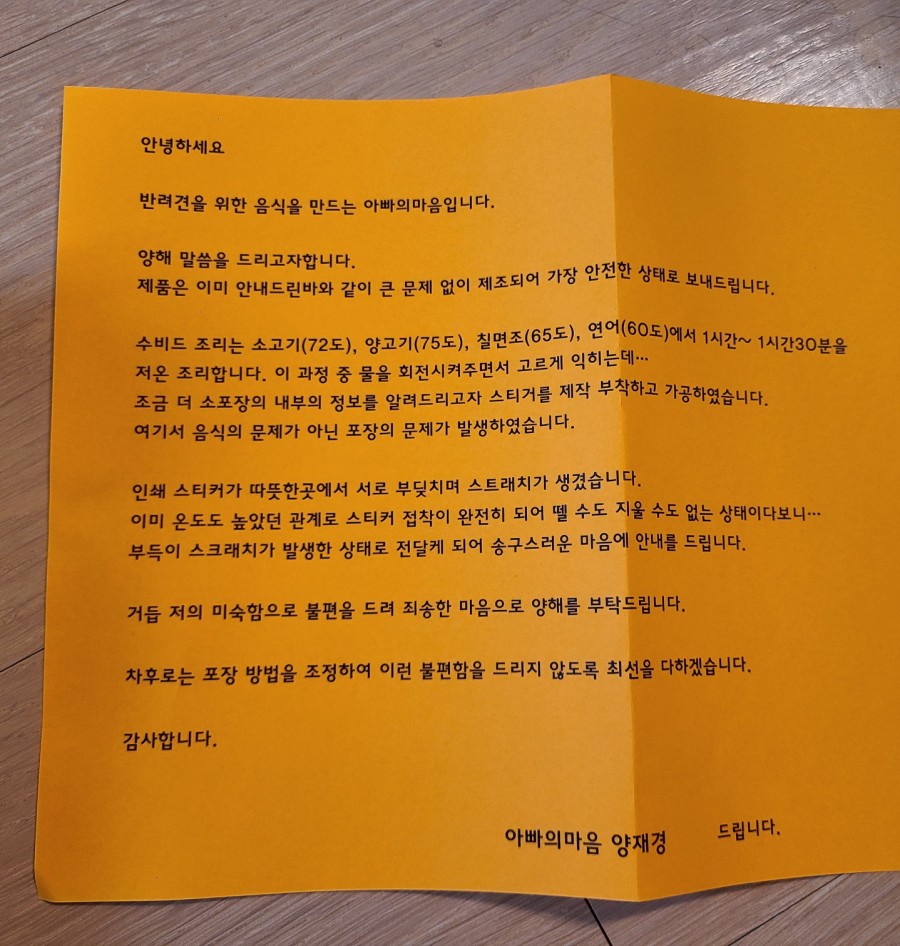 안녕하세요
반려견을 위한 음식을 만드는 아빠의마음입니다.
양해 말씀을 드리고자합니다.
제품은 이미 안내드린바와 같이 큰 문제 없이 제조되어 가장 안전한 상태로 보내드립니다.
수비드 조리는 소고기(72도), 양고기(75도), 칠면조(65도), 연어(60도)에서 1시간~ 1시간30분을
저온 조리합니다. 이 과정 중 물을 회전시켜주면서 고르게 익히는데…
조금 더 소포장의 내부의 정보를 알려드리고자 스티거를 제작 부착하고 가공하였습니다.
여기서 음식의 문제가 아닌 포장의 문제가 발생하였습니다.
인쇄 스티커가 따뜻한곳에서 서로 부딪치며 스트래치가 생겼습니다.
이미 온도도 높았던 관계로 스티커 접착이 완전히 되어 뗄 수도 지울 수도 없는 상태이다보니…
부득이 스크래치가 발생한 상태로 전달케 되어 송구스러운 마음에 안내를 드립니다.
거듭 저의 미숙함으로 불편을 드려 죄송한 마음으로 양해를 부탁드립니다.
차후로는 포장 방법을 조정하여 이런 불편함을 드리지 않도록 최선을 다하겠습니다.
감사합니다.
아빠의마음 양재경 드립니다.